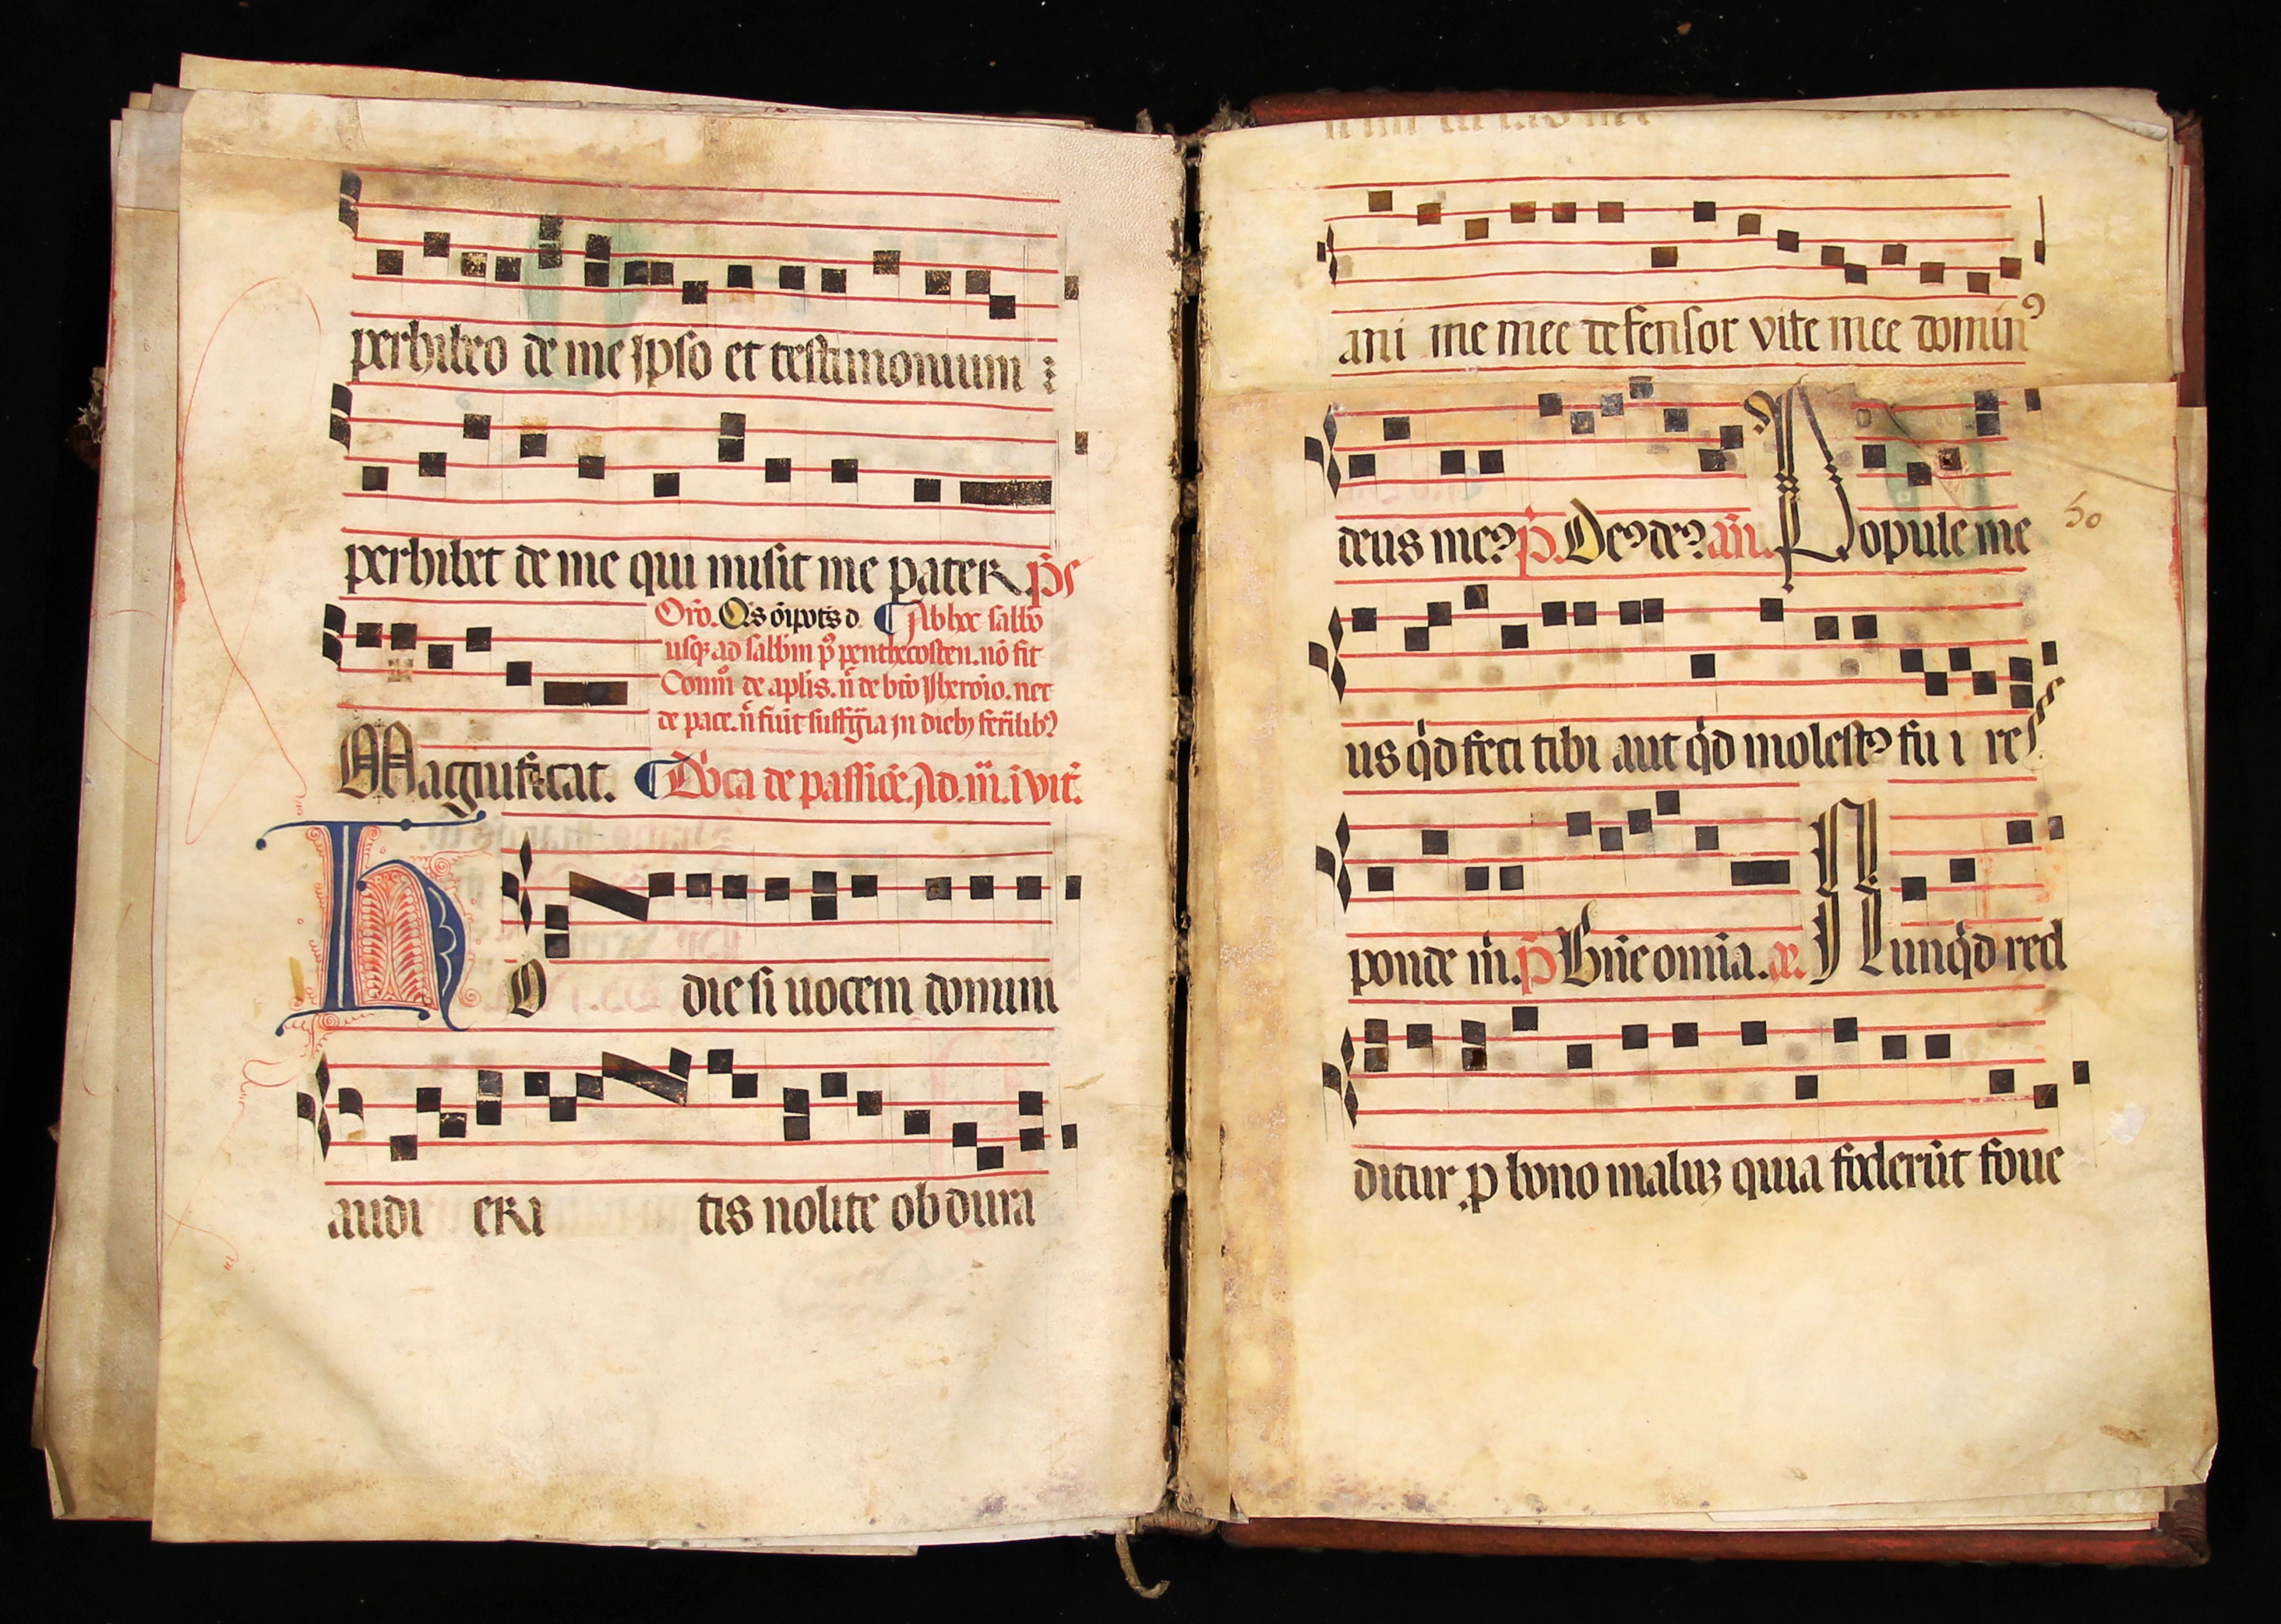 perhibeo de me ipso et testimonium
perhibet de me qui misit me pater. p̄s
Oro. Os̄ oīpots d. Ab hoc sabbo
usq; ad sabbm p9 penthecosten. nō fit
Com̄ de aplis. n̄ de bto Jheroio. nec
de pace. n̄ fiūt suffgia in dieb; ferīlib9
Magnificat. Dn̄ca de passiōe. Ad. m̄. ivit.
HO die si uocem domini
audi eRi tis nolite obdura
ani me mee defensor vite mee domin9
deus me9 p̄. De9 de9 an̄. Popule me
50
us qd feci tibi aut qd molest9 fu i res
ponde m. p̄ Bn̄e om̄ia. ae. Nunqd red
ditur p bono maluz quia foderūt foue